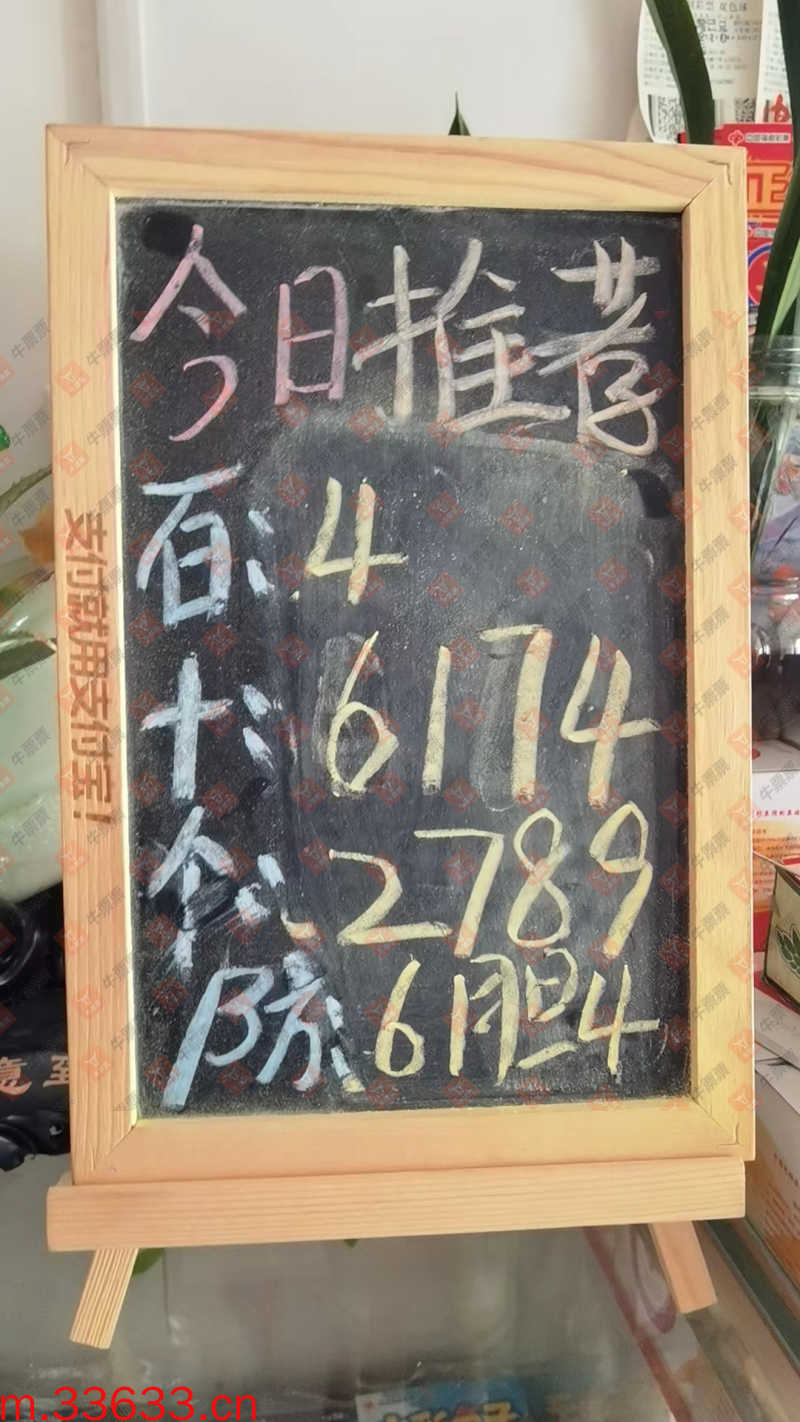 今日推荐
百:4
十:6174
个:2789
防:6胆4
支付就用支付宝!
意至
牛票票
m.33633.cn